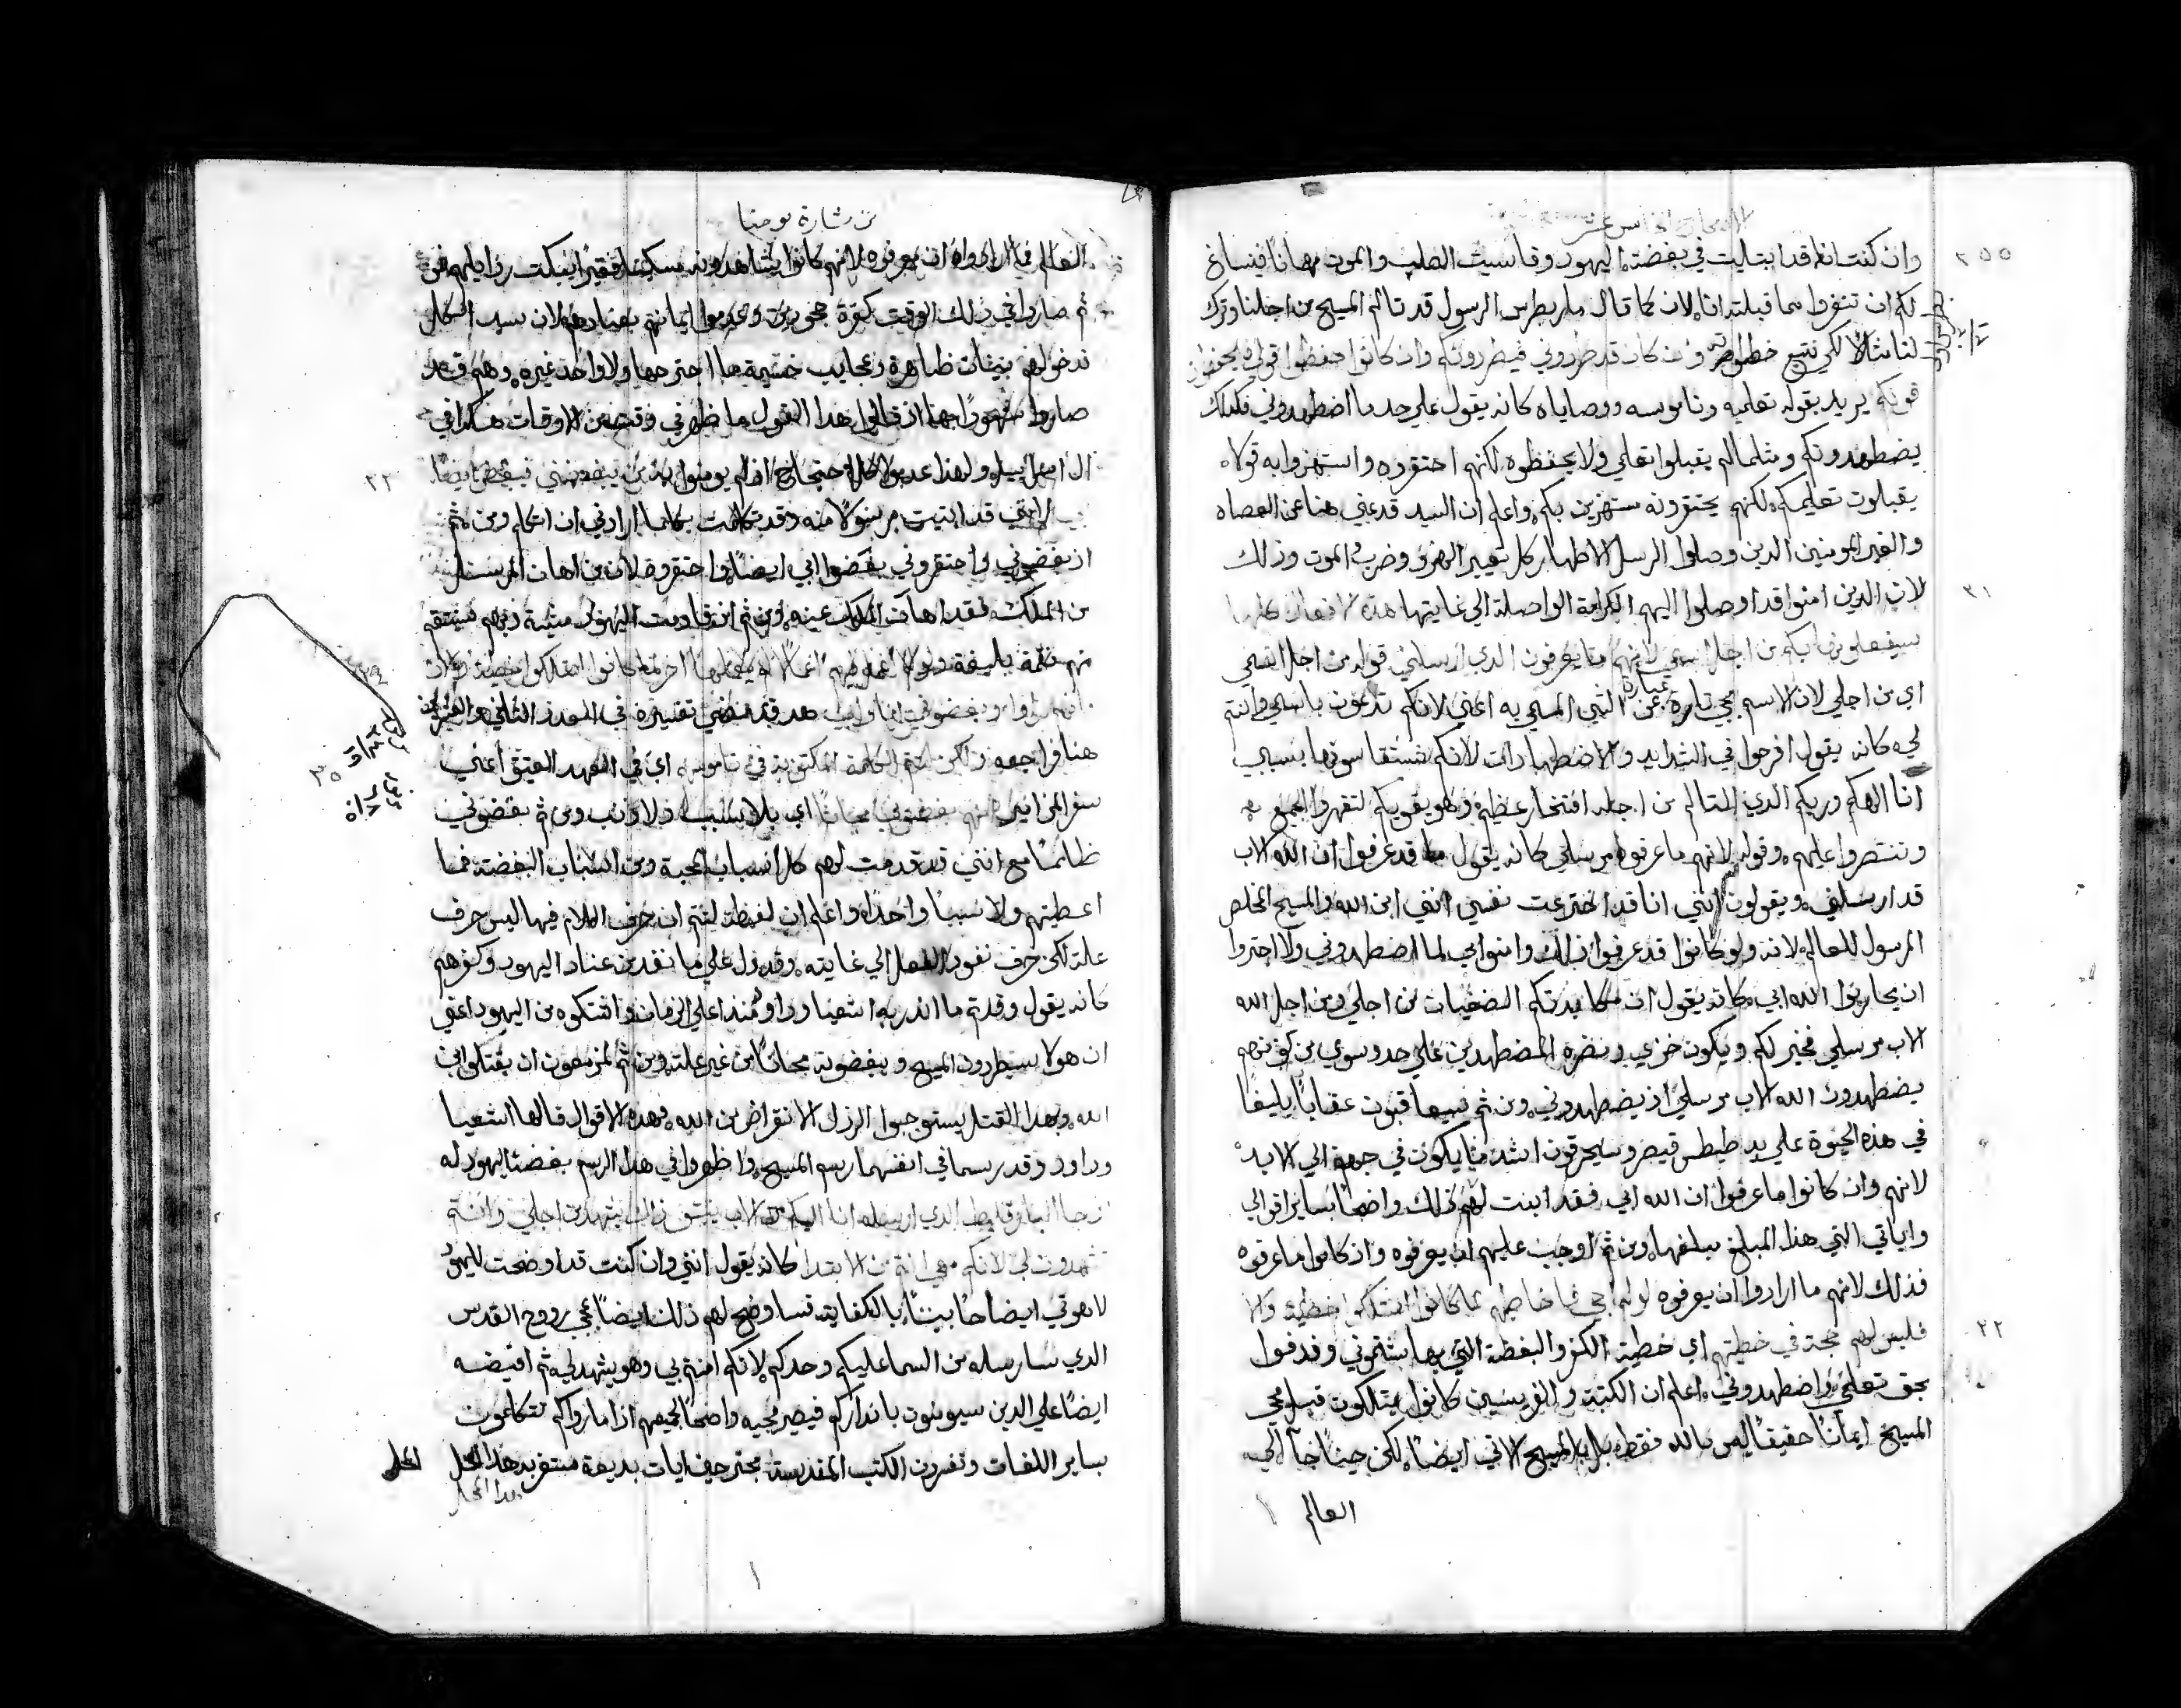 الاصحاح الخامس عشر
وان كنت انا قد ابتليت في بغضته اليهود وقاسيت الصلب والموت مهانا فنساغ
لكم ان تنفروا مما قبلته انا لان كما قال مار بطرس الرسول قد تالم المسيح من اجلنا وترك
لنا مثالا لكي نتبع خطواته وان كان قد طردوني فيطردونكم وان كانوا حفظوا قولي يحفظون
قولكم يريد بقوله تعليمه وناموسه ووصاياه كانه يقول علي حد ما اضطهدوني فكذلك
يضطهدونكم ومثلما لم يقبلوا تعلمي ولا يحفظوه لكنهم احتقروه واستهزوا به فهولاء
يقبلون تعليمكم لكنهم يحتقرونه مستهزين بكم واعلم ان السيد قد عني هنا عن العصاه
والغير المومنين الدين وصلوا الرسل الاطهار كل تعيير الهزو وضرب الموت وذلك
لان الدين امنوا قد اوصلوا اليهم الكرامة الواصلة الي غايتها هذه الافعال كلها
سيفعلونها بكم من اجل اسمي لانهم ما يعرفون الدي ارسلني قوله من اجل اسمي
اي من اجلي لان الاسم يجي تارة عبارة عن الشي المسمي به اعني لانكم تدعون باسمي وانتم
لي كانه يقول افرحوا في الشدايد والاضطهادات لانكم ستقاسونها بسببي
انا الهكم وربكم الدي التالم من اجله افتخار عظيم وهو يقويكم لتقهروا الجميع
وتنتصروا عليهم وقوله لانهم ما عرفوا مرسلي كانه يقول ما قد عرفوا ان الله الاب
قد ارسلني ويقولون انني انا قد اخترعت نفسي انني ابن الله والمسيح المخلص
المرسول للعالم لانه ولو كانوا قد عرفوا ذلك وامنوا بي لما اضطهدوني ولا اجتروا
ان يحاربوا الله ابي كانه يقول ان مكابدتكم الضغيات من اجلي ومن اجل الله
الاب مرسلي فخر لكم ويكون خزي ومضرة المضطهدين علي حد سوي من كونهم
يضطهدون الله الاب مرسلي اذ يضطهدوني ومن ثم سيعاقبون عقابا بليغا
في هذه الحيوة علي يد طيطس قيصر وسيحرقون اشد مما يكون في جهنم الي الابد
لانهم وان كانوا ما عرفوا ان الله ابي فقد ابنت لهم ذلك واضحا بساير اقوالي
واياتي التي هذا المبلغ مبلغها ومن ثم اوجبت عليهم ان يعرفوه واذ كانوا ما عرفوه
فذلك لانهم ما ارادوا ان يعرفوه لو لم اجي فاخاطبهم لما كانوا امتلكوا خطية والان
فليس لهم حجة في خطيتهم اي خطية الكفر والبغضة التي بها شتموني وقدفوا
بحق تعلمي واضطهدوني اعلم ان الكتبة والفريسيين كانوا يمتلكون قبل مجي
المسيح ايمانا حقيقا ليس بالله فقط بل بالمسيح الاتي ايضا لكن حينا جاء الي
العالم
٢٥٥
٢١
٢٢
من بشارة يوحنا
العالم فما ارادوا ان يعرفوه لانهم كانوا يشاهدونه مسكينا فقيرا يبكت رذايلهم
ثم صاروا في ذلك الوقت كفرة جحودين وعدموا ايمانهم بعنادهم لان سيد الكل
قد خولهم بينات ظاهرة وعجايب ما اجترحها ولا واحد غيره وهم قد
صاروا شهودا بها اذ قالوا هذا القول ما ظهر في وقت من الاوقات هكذا في
ال اسراييل ولهذا عدموا كل احتجاج اذ لم يومنوا به من يبغضني فيبغض ايضا
ابي لانني قد اتيت مرسولا منه وقد تكلمت بكلما ارادني ان اتكلم ومن ثم
اذ بغضوني واحتقروني بغضوا ابي ايضا واحتقروه لان من اهان المرسل
من الملك فقد اهان الملك عينه ومن ثم اذ قاومت اليهود مشية ربهم فينتقم
منهم نقمة بليغة ولولا اعمل فيهم اعمالا لم يعملها اخر لما كانوا امتلكوا خطية والان
فانهم راوا وبغضوني انا وابي هدا قد مضي تفسيره في العدد الثاني والعشرين
هنا فراجعه ولكن لتتم الكلمة المكتوبة في ناموسهم اي في العهد العتيق اعني
سفر المزامير انهم بغضوني مجانا اي بلا سبب ولا ذنب ومن ثم بغضوني
ظالما مع انني قد قدمت لهم كل اسباب المحبة ومن اسباب البغضة فما
اعطيتهم ولا سببا واحدا واعلم ان لفظة لتتم ان حرف اللام فيها ليس حرف
علة لكن حرف نفود الفعل الي غايته وقد دل علي ما تقدم من عناد اليهود وكفرهم
كانه يقول وقد تم ما انذر به اشعيا وداود منذ اعلي الزمان واشتكوه من اليهود اعني
ان هولا سيطردون المسيح ويبغضونه مجانا من غير علة ومن ثم مزمعون ان يقتلوا ابن
الله وبهذا القتل يستوجبوا الرذل والانقراض من الله فهذه الاقوال قالها اشعيا
وداود وقد رسما في انفسهما رسم المسيح واظهروا في هذا الرسم بغضة اليهود له
اذ جا البارقليط الدي ارسله انا اليكم من الاب ينبثق ذاك يشهد من اجلي وانتم
تشهدون لي لانكم معي انتم من الابتدا كانه يقول انني وان كنت قد اوضحت لليهود
لاهوتي ايضاحا بينا بالكفاية فساوضح لهم ذلك ايضا بمجي روح القدس
الدي سارسله من السما عليكم وحدكم لانكم امنتم بي وهو يشهد لي ثم افيضه
ايضا علي الدين سيومنون بانداركم فيصير مجيه واضحا لجميعهم اذا ما راوكم تتكلمون
بساير اللغات وتفسرون الكتب المقدسة مجترحين ايات بديعة مستغربة هذا المحل
٢٣
٢٤
٣٥